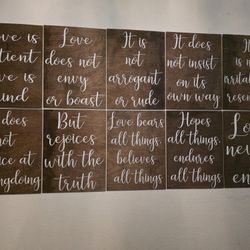 ove is
tient
ve is
ind
Love
does not
envy
or boast
It is
not
arrogant
or rude
It does
not insist
on its
own way
It is
not
irrita
resen
does
not
ice at
ngdoing
But
rejoices
with the
truth
Love bears
all things,
believes
all things.
Hopes
all things,
endures
all things.
Lo
ne
en